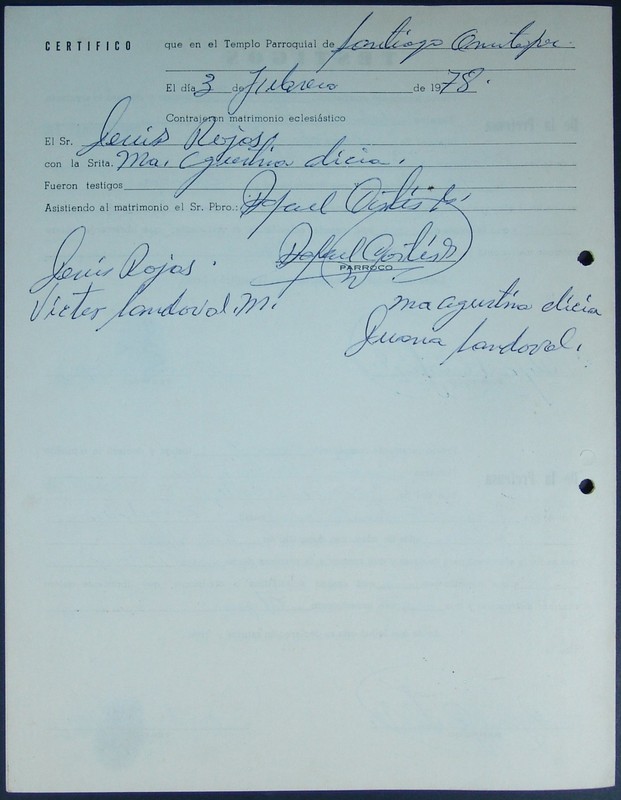 CERTIFICO que en el Templo Parroquial de Santiago
El día 3 de Febrero de 1978.
Contrajeron matrimonio eclesiástico
El Sr. Jesús Rojas
con la Srita. Ma. Agustina dicia.
Fueron testigos
Asistiendo al matrimonio el Sr. Pbro.: Rafael
Rafael
PARROCO
Jesús Rojas.
Victor Sandoval. M.
Ma Agustina dicia
Juana Sandoval.